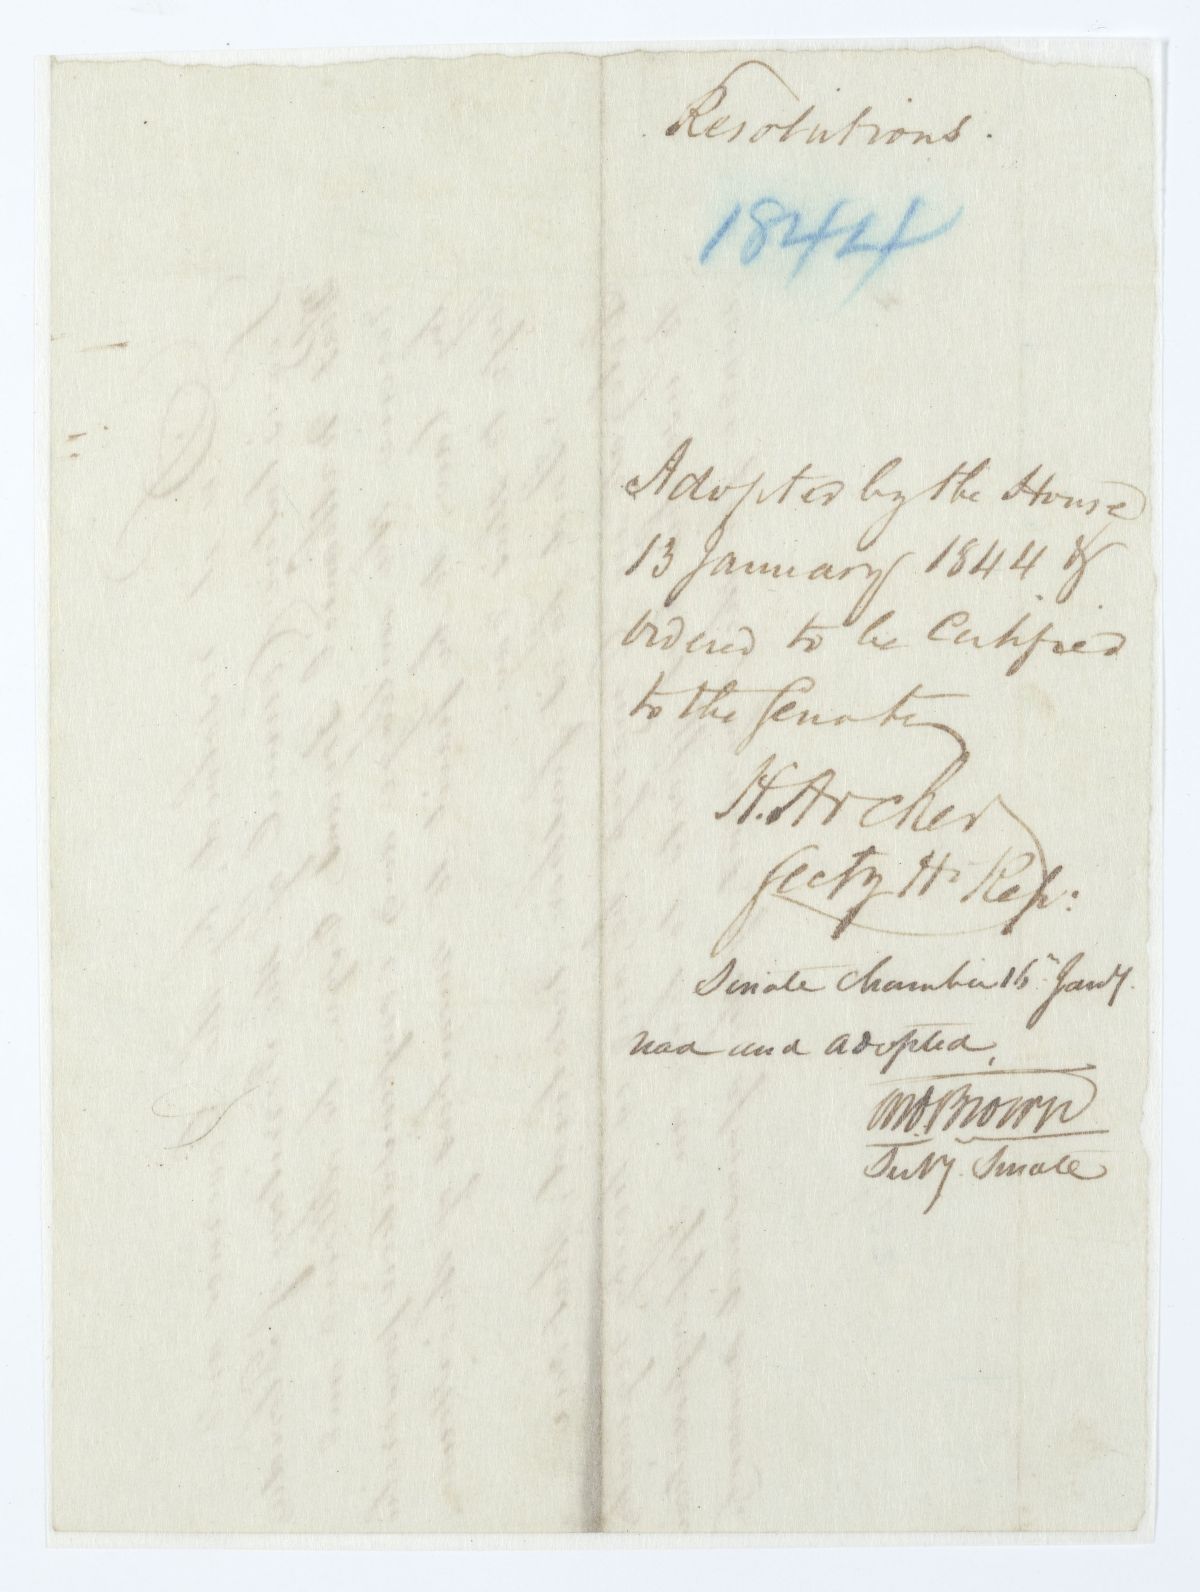 Resolutions.
1844
Adopted by the House
13 January 1844 &
ordered to be Certified
to the Senate
H. Archer
Secty H. Rep:
Senate Chamber 16 Jany.
read and adopted,
Brown
Secty. Senate